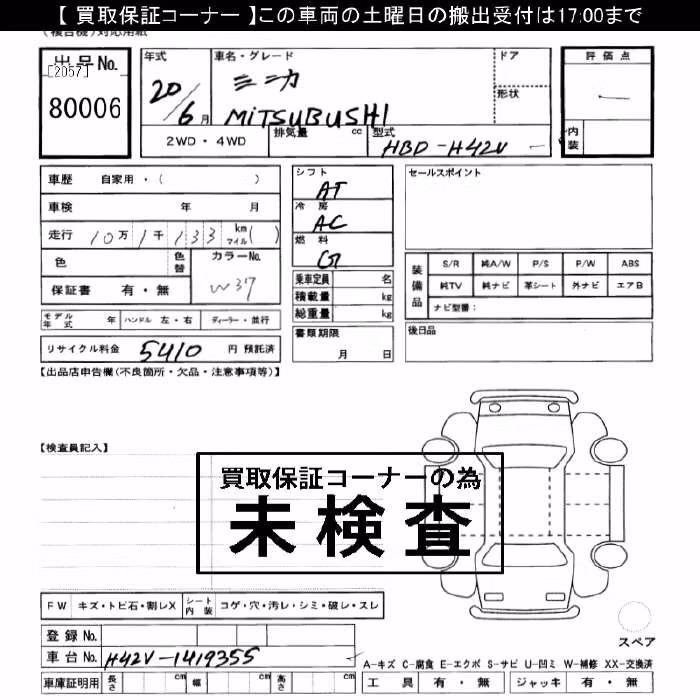 【 買取保証コーナー 】この車両の土曜日の搬出受付は17:00まで
(複合機)対応用紙
出品No.
[2057]
80006
年式
20/6月
車名・グレード
ミニカ
MiTSUBUSHI
ドア
形状
評価点
内装
2WD・4WD
排気量 cc
型式
HBD-H42V
車歴 自家用・( )
車検 年 月
走行 10万 1千 133 km マイル( )
色
色替
カラーNo.
W37
保証書 有・無
モデル年式 年 ハンドル 左・右 ディーラー・並行
リサイクル料金 5410 円 預託済
シフト
AT
冷房
AC
燃料
G
乗車定員 名
積載量 kg
総重量 kg
書類期限
月 日
セールスポイント
装備品
S/R 純A/W P/S P/W ABS
純TV 純ナビ 革シート 外ナビ エアB
ナビ型番:
後日品
【出品店申告欄(不良箇所・欠品・注意事項等)】
【検査員記入】
買取保証コーナーの為
未検査
FW キズ・トビ石・割レX シート内装 コゲ・穴・汚レ・シミ・破レ・スレ
登録No.
車台No. H42V-1419355
車庫証明用 長さ cm 幅 cm 高さ cm
スペア
A-キズ C-腐食 E-エクボ S-サビ U-凹ミ W-補修 XX-交換済
工具 有・無 ジャッキ 有・無